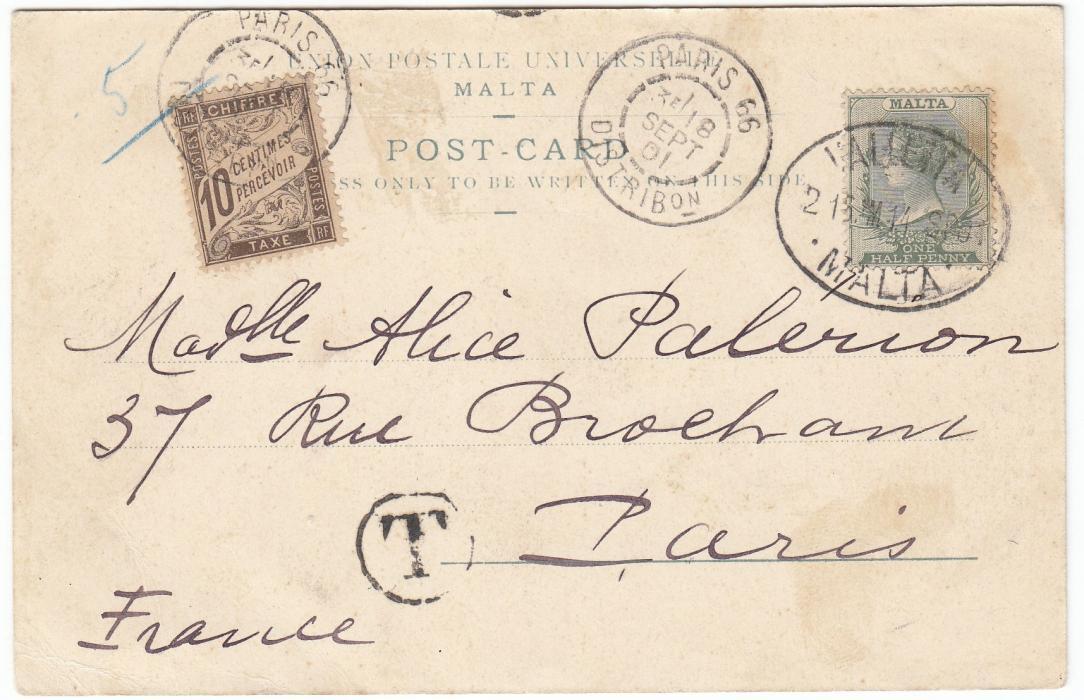 PARIS 66
5
UNION POSTALE UNIVERSELLE
MALTA
POST-CARD
ADDRESS ONLY TO BE WRITTEN ON THIS SIDE
CHIFFRE
RF
POSTES
10 CENTIMES A PERCEVOIR
POSTES
TAXE
RF
PARIS 66
3E/ 18
SEPT
01
DISTRIBON
MALTA
ONE
HALF PENNY
VALLETTA
MALTA
Madlle Alice Palerion
37 Rue Brochant
Paris
T
France